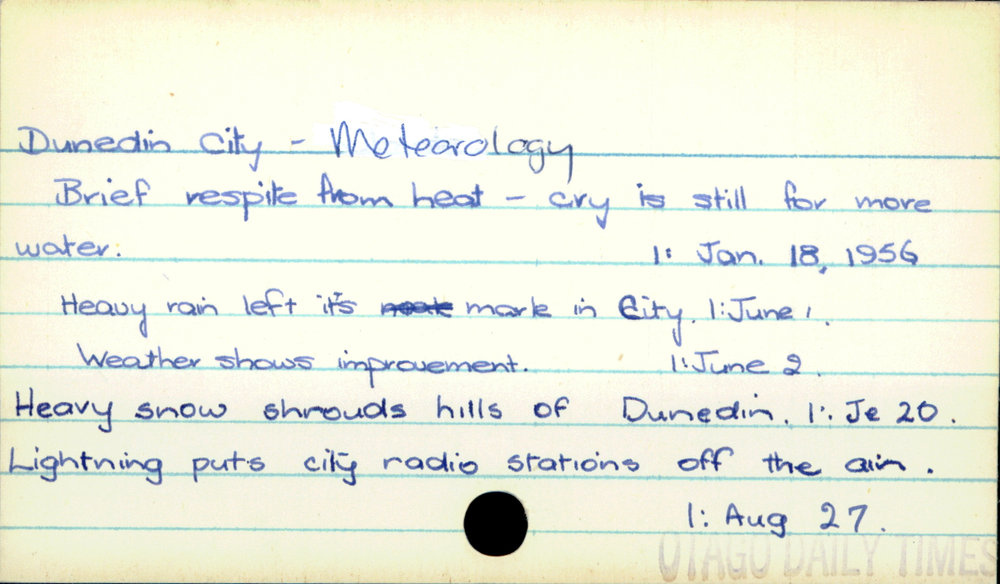 Dunedin City - Meteorology
Brief respite from heat - cry is still for more
water. 1: Jan. 18, 1956
Heavy rain left it's mark in City. 1: June 1.
Weather shows improvement. 1: June 2.
Heavy snow shrouds hills of Dunedin. 1: Je 20.
Lightning puts city radio stations off the air.
1: Aug 27.
OTAGO DAILY TIMES